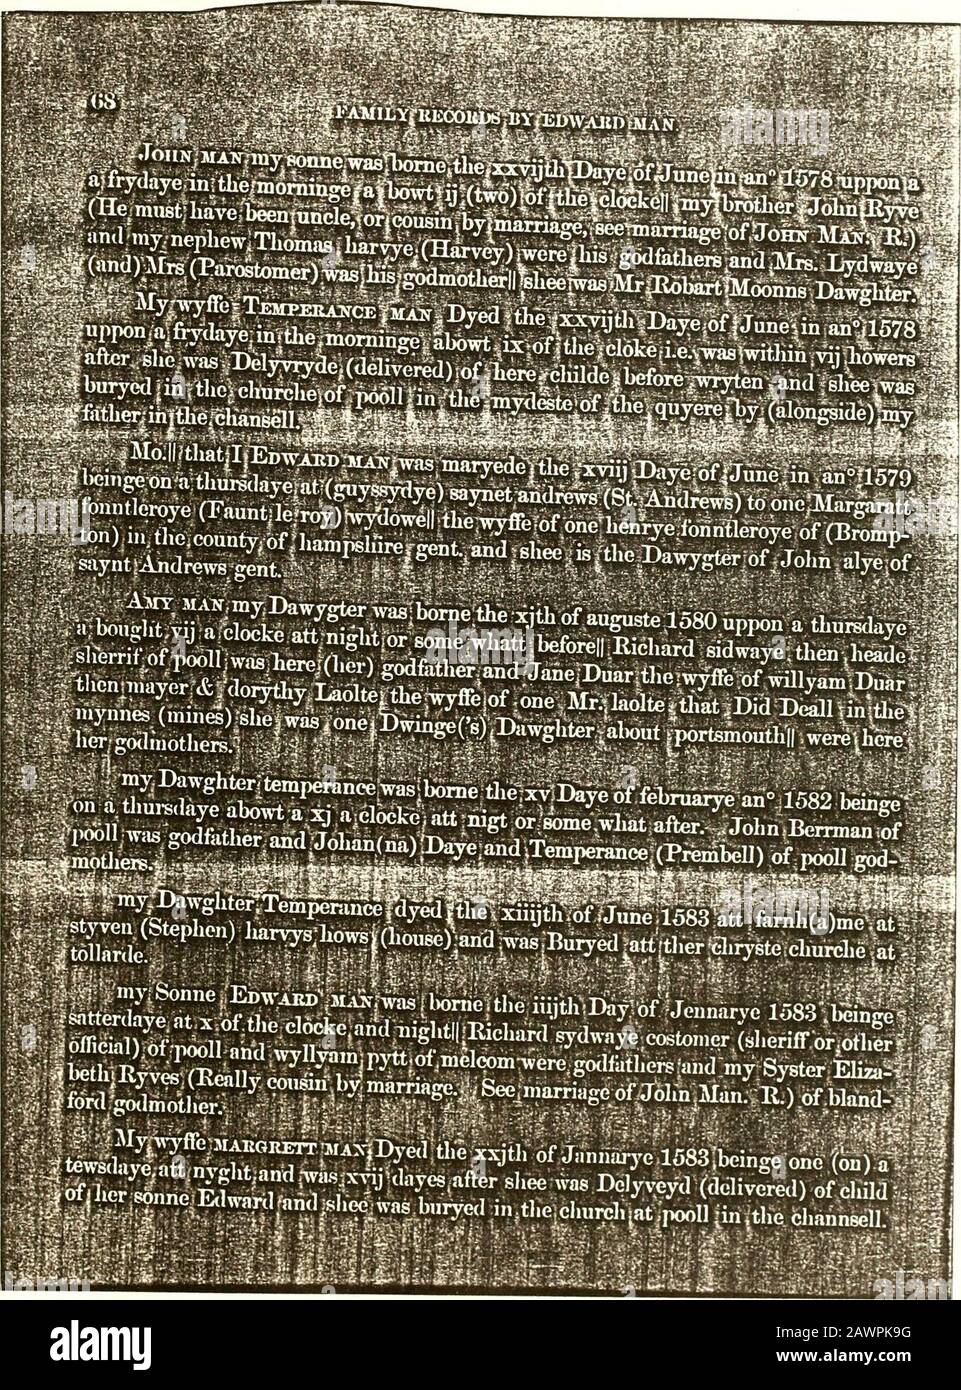 68
FAMILY RECORDS BY EDWARD MAN
JOHN MAN my sonne was borne the xxvijth Daye of June in an° 1578 uppon a
a frydaye in the morninge a bowt ij (two) of the clocke|| my brother John Ryve
(He must have been uncle, or cousin by marriage, see marriage of JOHN MAN. R.)
and my nephew Thomas harvye (Harvey) were his godfathers and Mrs. Lydwaye
(and) Mrs (Parostomer) was his godmother|| shee was Mr Robart Moonns Dawghter.
My wyffe TEMPERANCE MAN Dyed the xxvijth Daye of June in an° 1578
uppon a frydaye in the morninge abowt ix of the cloke i.e. was within vij howers
after she was Delyvryde (delivered) of here childe before wryten and shee was
buryed in the churche of pooll in the mydeste of the quyere by (alongside) my
father in the chansell.
Mo.|| that I EDWARD MAN was maryede the xviij Daye of June in an° 1579
beinge on a thursdaye at (guyssydye) saynet andrews (St. Andrews) to one Margaratt
fonntleroye (Faunt le roy) wydowe|| the wyffe of one henrye fonntleroye of (Bromp-
ton) in the county of hampshire gent. and shee is the Dawygter of John alye of
saynt Andrews gent.
AMY MAN my Dawygter was borne the xjth of auguste 1580 uppon a thursdaye
a bought vij a clocke att night or some whatt before|| Richard sidwaye then heade
sherrif of pooll was here (her) godfather and Jane Duar the wyffe of willyam Duar
then mayer & dorythy Laolte the wyffe of one Mr. laolte that Did Deall in the
mynnes (mines) she was one Dwinge('s) Dawghter about portsmouth|| were here
her godmothers.
my Dawghter temperance was borne the xv Daye of februarye an° 1582 beinge
on a thursdaye abowt a xj a clocke att nigt or some what after. John Berrman of
pooll was godfather and Johan(na) Daye and Temperance (Prembell) of pooll god-
mothers.
my Dawghter Temperance dyed the xiiijth of June 1583 att farnh(a)me at
styven (Stephen) harvys hows (house) and was Buryed att ther chryste churche at
tollarde.
my Sonne EDWARD MAN was borne the iiijth Day of Jennarye 1583 beinge
satterdaye at x of the clocke and night|| Richard sydwaye costomer (sheriff or other
official) of pooll and wyllyam pytt of melcom were godfathers and my Syster Eliza-
beth Ryves (Really cousin by marriage. See marriage of John Man. R.) of bland-
ford godmother.
My wyffe MARGRETT MAN Dyed the xxjth of Jannarye 1583 beinge one (on) a
tewsdaye att nyght and was xvij dayes after shee was Delyveyd (delivered) of child
of her sonne Edward and shee was buryed in the church at pooll in the channsell.
alamy
Image ID: 2AWPK9G
www.alamy.com